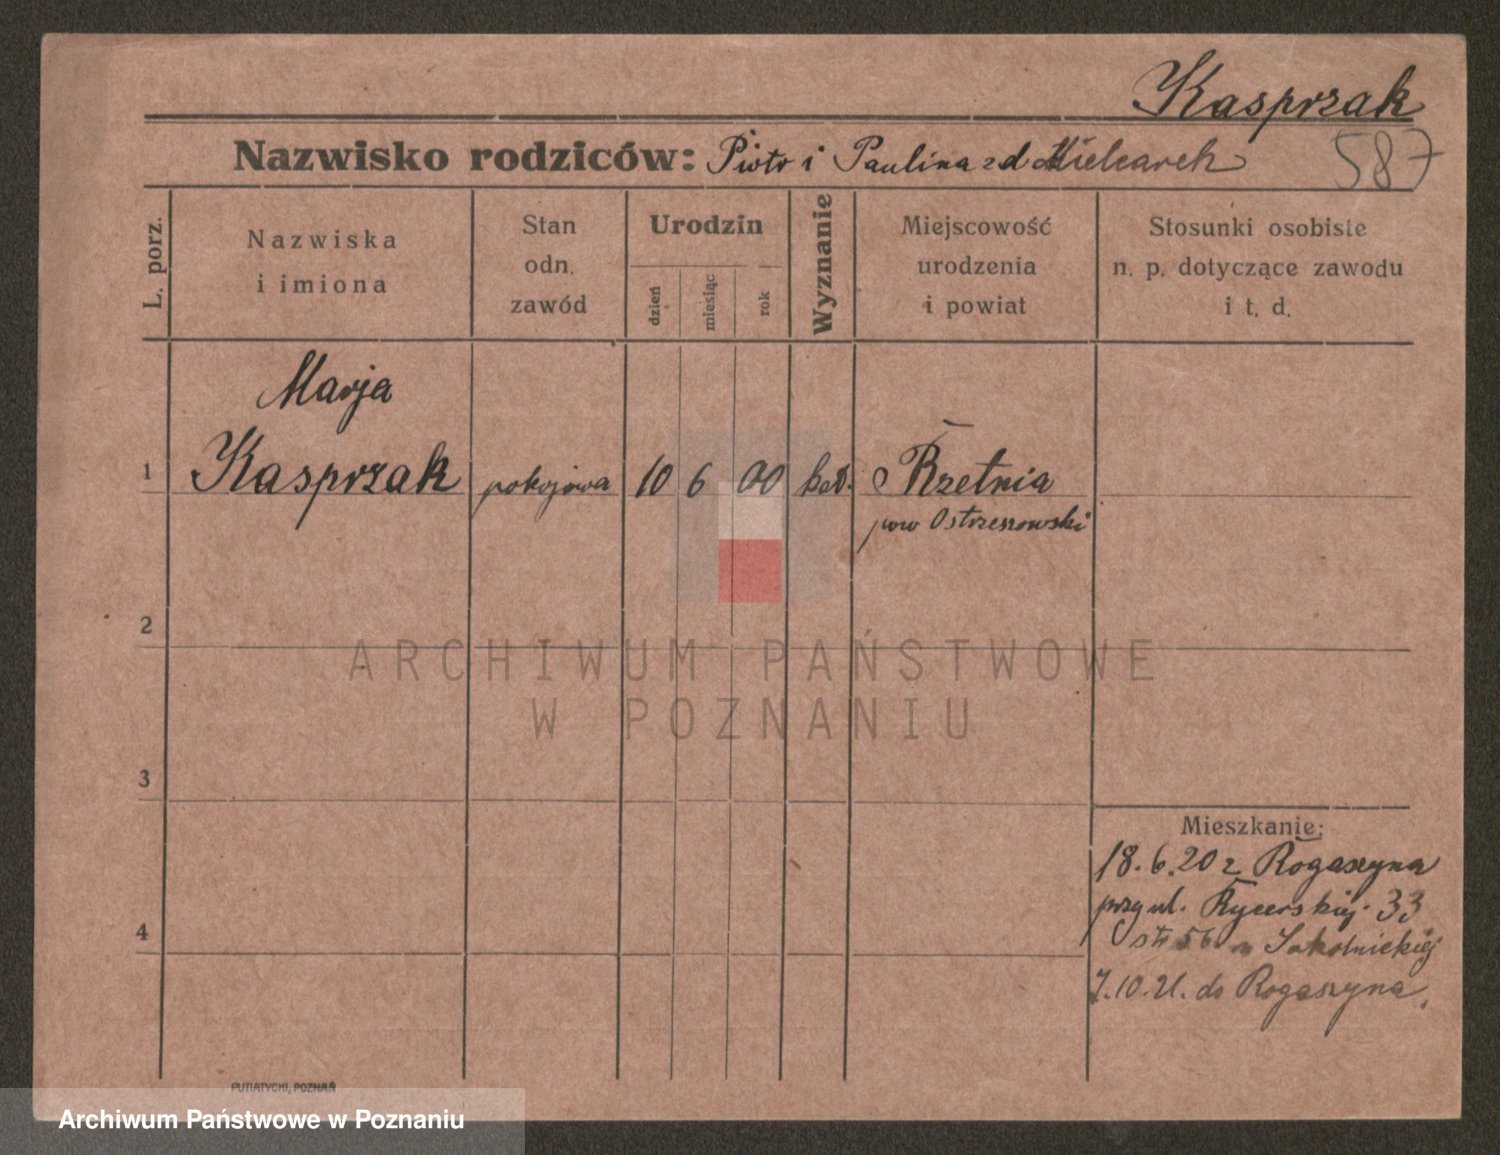 Kasprzak
587
Nazwisko rodziców: Piotr i Paulina zd Mielcarek
L. porz.
Nazwiska
i imiona
Stan
odn.
zawód
Urodzin
dzień
miesiąc
rok
Wyznanie
Miejscowość
urodzenia
i powiat
Stosunki osobiste
n. p. dotyczące zawodu
i t. d.
Marja
1 Kasprzak pokojowa 10 6 00 kat. Rzetnia
pow Ostrzeszowski
2
ARCHIWUM PAŃSTWOWE
W POZNANIU
3
Mieszkanie:
18.6.20 z Rogaszyna
przy ul. Rycerskiej 33
56
4
7.10.21. do Rogaszyna.
PUTIATYCKI, POZNAŃ
Archiwum Państwowe w Poznaniu